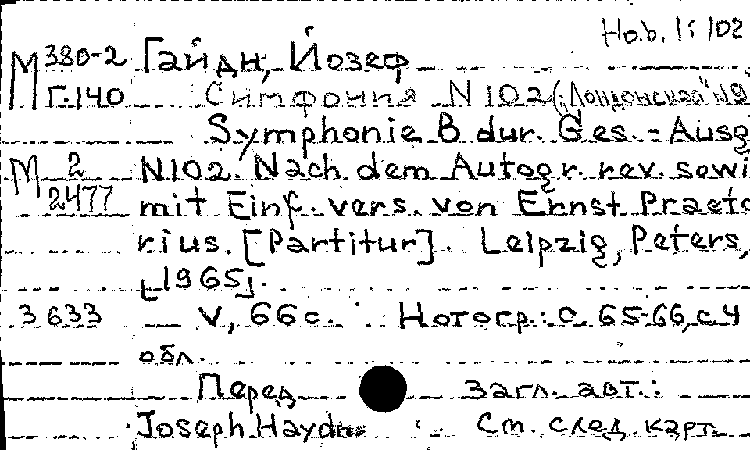 Hob. I: 102
М 380-2 Гайдн, Йозеф
Г-140 Симфония N 102 („Лондонская" N9
Symphonie B dur. Ges. - Ausg
М 2 N102. Nach dem Autogr. rev. sowi
2477 mit Einf. vers. von Ernst Praeto
rius. [Partitur]. Leipzig, Peters,
[1965].
3633 V, 66 с. Нотогр.: с. 65-66, с 4
обл.
Перед загл. авт.:
Joseph Haydn
См. след. карт.